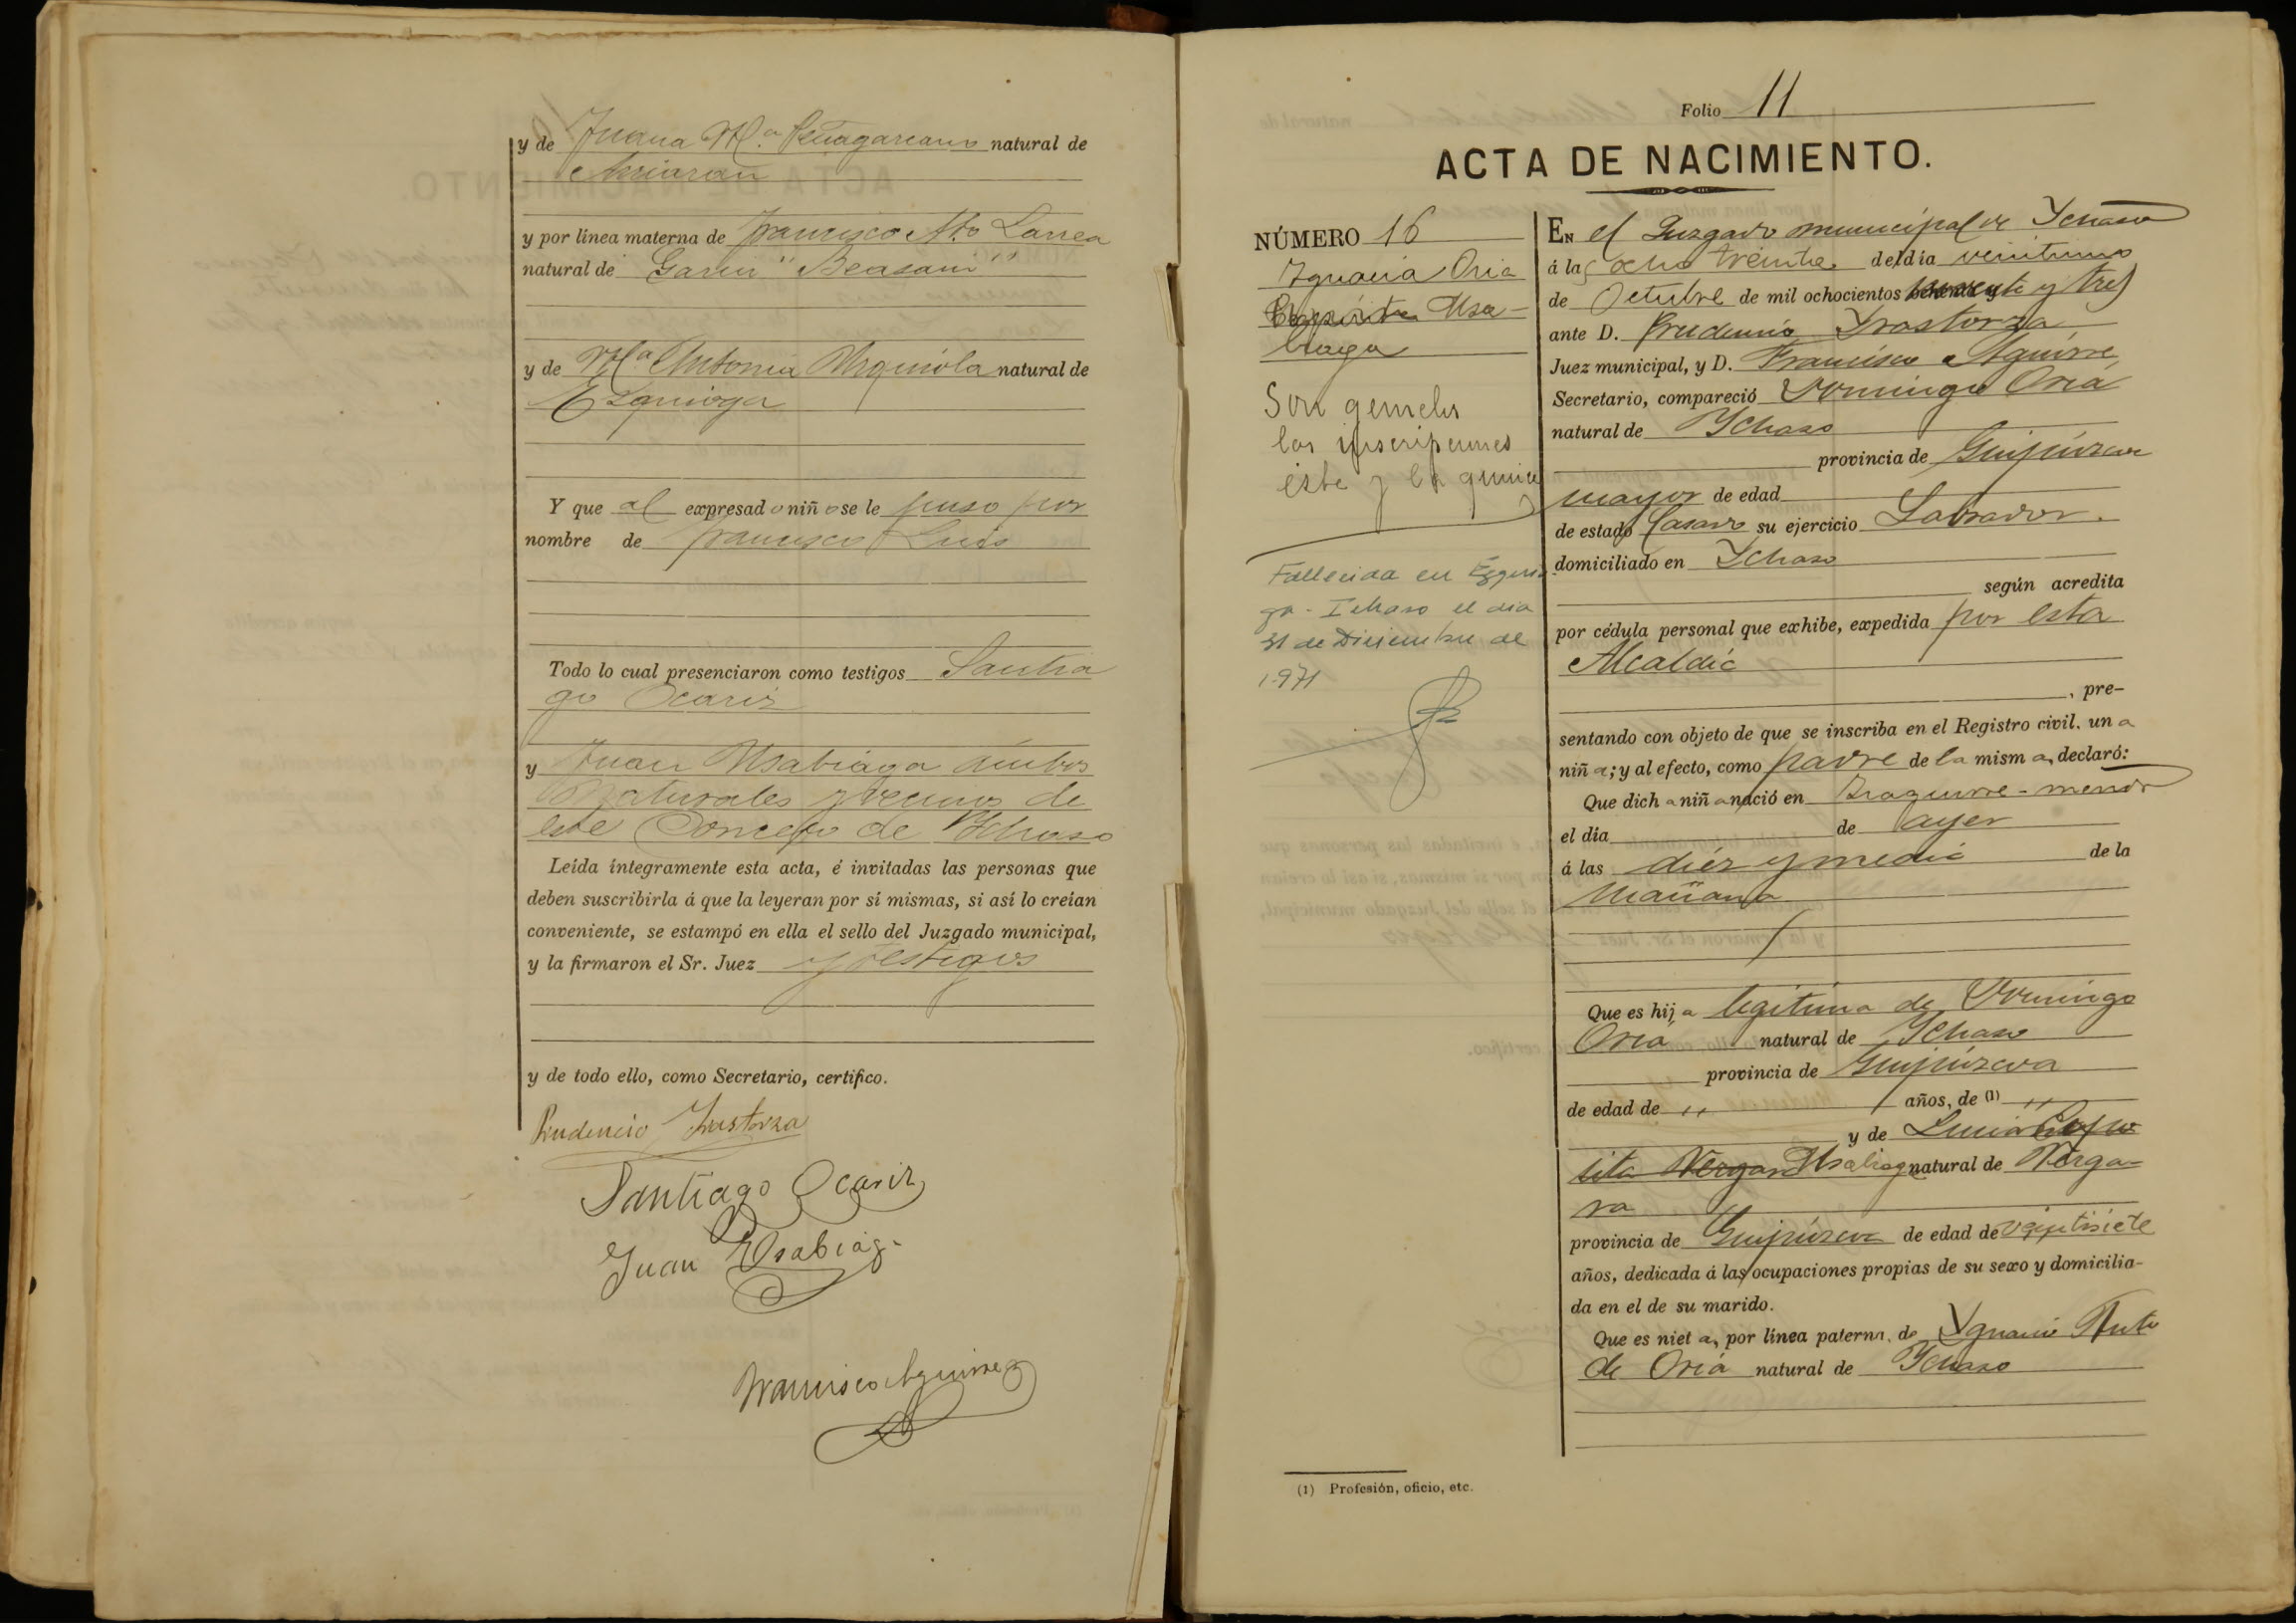 y de Juana Mª Peñagaricano natural de
Arriaran
y por línea materna de Francisco Ato Larrea
natural de Garin " Beasain "
y de Mª Antonia Urquiola natural de
Ezquioga
Y que al expresado niño se le puso por
nombre de Francisco Luis
Todo lo cual presenciaron como testigos Santia
go Ocariz
y Juan Usabiaga ámbos
naturales y vecinos de
este Concejo de Ychaso
Leída íntegramente esta acta, é invitadas las personas que
deben suscribirla á que la leyeran por sí mismas, si así lo creían
conveniente, se estampó en ella el sello del Juzgado municipal,
y la firmaron el Sr. Juez y testigos
y de todo ello, como Secretario, certifico.
Prudencio Irastorza
Santiago Ocariz
Juan Usabiaga
Francisco Aguirre
Folio 11
ACTA DE NACIMIENTO.
NÚMERO 16
Ignacia Oria
Expósita Usa-
biaga
Son gemelas
las inscripciones
éste y la quince
Fallecida en Ezquio
ga - Ichaso el dia
31 de Diciembre de
1.971
EN el Juzgado municipal de Ychaso
á las ocho treinta del día veintiuno
de Octubre de mil ochocientos noventa y tres
ante D. Prudencio Yrastorza
Juez municipal, y D. Francisco Aguirre
Secretario, compareció Domingo Oria
natural de Ychaso
provincia de Guipúzcoa
mayor de edad
de estado Casado su ejercicio Labrador.
domiciliado en Ychaso
según acredita
por cédula personal que exhibe, expedida por esta
Alcaldía
, pre-
sentando con objeto de que se inscriba en el Registro civil, una
niña; y al efecto, como padre de la misma, declaró:
Que dicha niña nació en Iraguirre-menor
el día de ayer
á las diéz y media de la
mañana
Que es hija legítima de Domingo
Oria natural de Ychaso
provincia de Guipúzcoa
de edad de " años, de (1) "
y de Lucia Expó
sita Vergara Usabiaga natural de Verga-
ra
provincia de Guipúzcoa de edad de veintisiete
años, dedicada á las ocupaciones propias de su sexo y domicilia-
da en el de su marido.
Que es nieta, por línea paterna, de Ygnacio Anto
de Oria natural de Ychaso
(1) Profesión, oficio, etc.